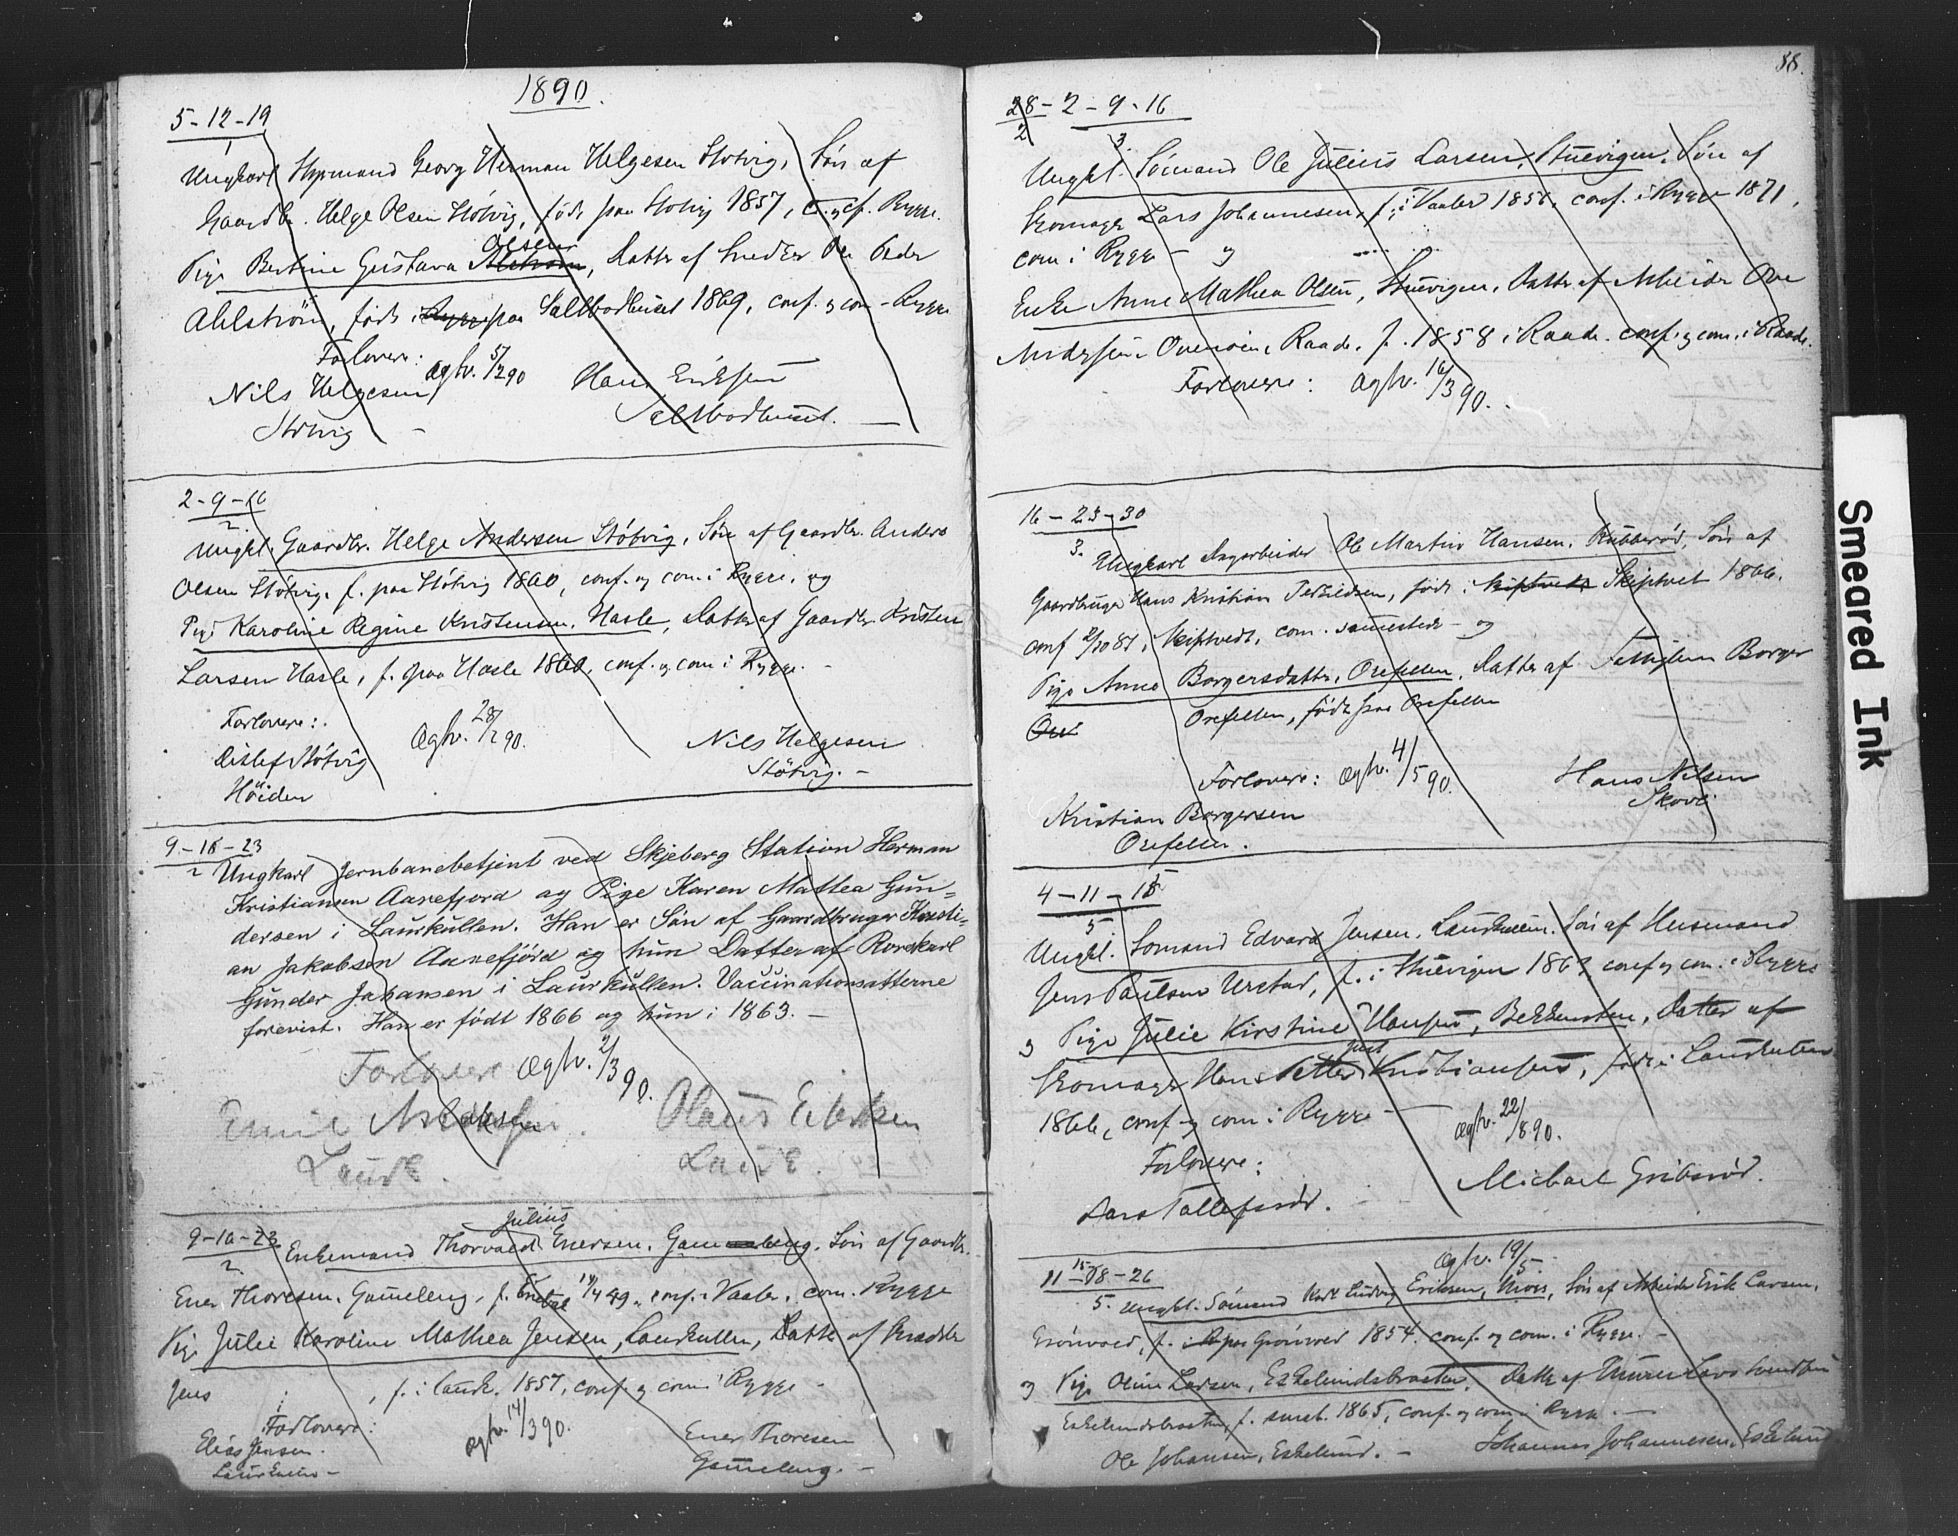 1890.
5-12-19
1
Ungkarl Styrmand Georg Herman Helgesen Støtvig, Søn af
Gaardbr. Helge Olsen Støtvig, født paa Støtvig 1857, c. og cf. Rygge.
Olsen
Pige Bertine Gustava Ahlstrøm, Datter af Snedker Ole Peder
Ahlström, født i Rygge paa Saltbodhuset 1869, conf. og com - Rygge
Forlovere: Ægtv. 5/2 90
Nils Helgesen Hans Eriksen
Støtvig - Saltbodhuset. -
2-9-16
2.
Ungkl. Gaardbr. Helge Andersen Støtvig, Søn af Gaardbr. Anders
Olsen Støtvig, f. paa Støtvig 1860, conf. og com i Rygge, og
Pige Karoline Regine Kristensen, Hasle, Datter af Gaardbr. Kristen
Larsen Hasle, f. paa Hasle 1860, conf. og com i Rygge. -
Forlovere: Ægtv. 28/2 90.
Ditlef Støtvig Nils Helgesen
Höiden Støtvig. -
9-16-23
2
Ungkarl Jernbanebetjent ved Skjeberg Station Herman
Kristiansen Aarefjord og Pige Karen Mathea Gun-
dersen i Laurkullen. Han er Søn af Gaardbruger Kristi-
an Jakobsen Aarefjord og hun Datter af Rorskarl
Gunder Johansen i Laurkullen. Vaccinationsatterne
forevist. Han er født 1866 og hun i 1863. -
Forlovere Ægtv. 2/3 90.
Emil Olaus Eriksen
Laurk. Laurk.
9-16-23
2.
Julius
Enkemand Thorvald Enersen, Gameleng, Søn af Gaardbr.
Ener Thoresen, Gameleng, f. 49, conf. i Vaaler, com. Rygge
Pige Julie Karoline Mathea Jensen, Laurkullen, Datter af
Jens , f. i Laurk. 1857, conf. og com i Rygge -
Forlovere: Ægtv. 14/3 90.
Elias Jensen Ener Thoresen
Laurkullen - Gameleng. -
88.
28 - 2 - 9 - 16
2 3.
Ungkl. Sömand Ole Julius Larsen, Stuevigen, Søn af
Skomager Lars Johannesen, f. i Vaaler 1856, conf. i Rygge 1871,
com i Rygge - og
Enke Anne Mathea Olsen, Stuevigen, Datter af Arbeider Ove
Andersen, Raade, f. 1858 i Raade. conf. og com. i Raade.
Forlovere: Ægtv. 16/3 90.
16 - 23 - 30
3.
Ungkarl Ole Martin Hansen, Rubberød, Søn af
Gaardbruger Hans Kristian Terkildsen, født i Skiptvedt Skiptvet 1866.
conf 2/10 81, Skiptvedt, com. sammesteds - og
Pige Anne Borgersdatter, Orefellen, Datter af Borger
Ore Orefellen, født paa Orefellen
Forlovere: Ægtv. 4/5 90. Hans Nilsen
Kristian Borgersen Skovli
Orefellen.
4-11-15
5
Ungkl. Sømand Edvard Jensen, Laurkullen, Søn af Husmand
Jens Paulsen Urstad, f. i Stuevigen 1863, conf og com. i Rygge
og Pige Julie Kirstine Hansen, Bekkensten, Datter af
Skomager Hans Petter Kristiansen, født i Laurkullen
1866, conf. og com i Rygge - Ægtv. 22/8 90.
Forlovere: Michael Gribsrød.
Lars Tollefsrød.
11-18-26 Ægtv. 19/5.
5.
Ungkl. Sömand Karl Ludvig Eriksen, Moss, Søn af Arbeider Erik Larsen,
Grönvold, f. paa Grönvold 1854. conf. og com. i Rygge. -
og Pige Oline Larsen, Eskelundsbraaten, Datter af Murer Lars Svendsen
Eskelundsbraaten, f. smst. 1865, conf. og com i Rygge. -
Ole Johansen, Eskelund. - Johannes Johannesen, Eskelund
Smeared Ink